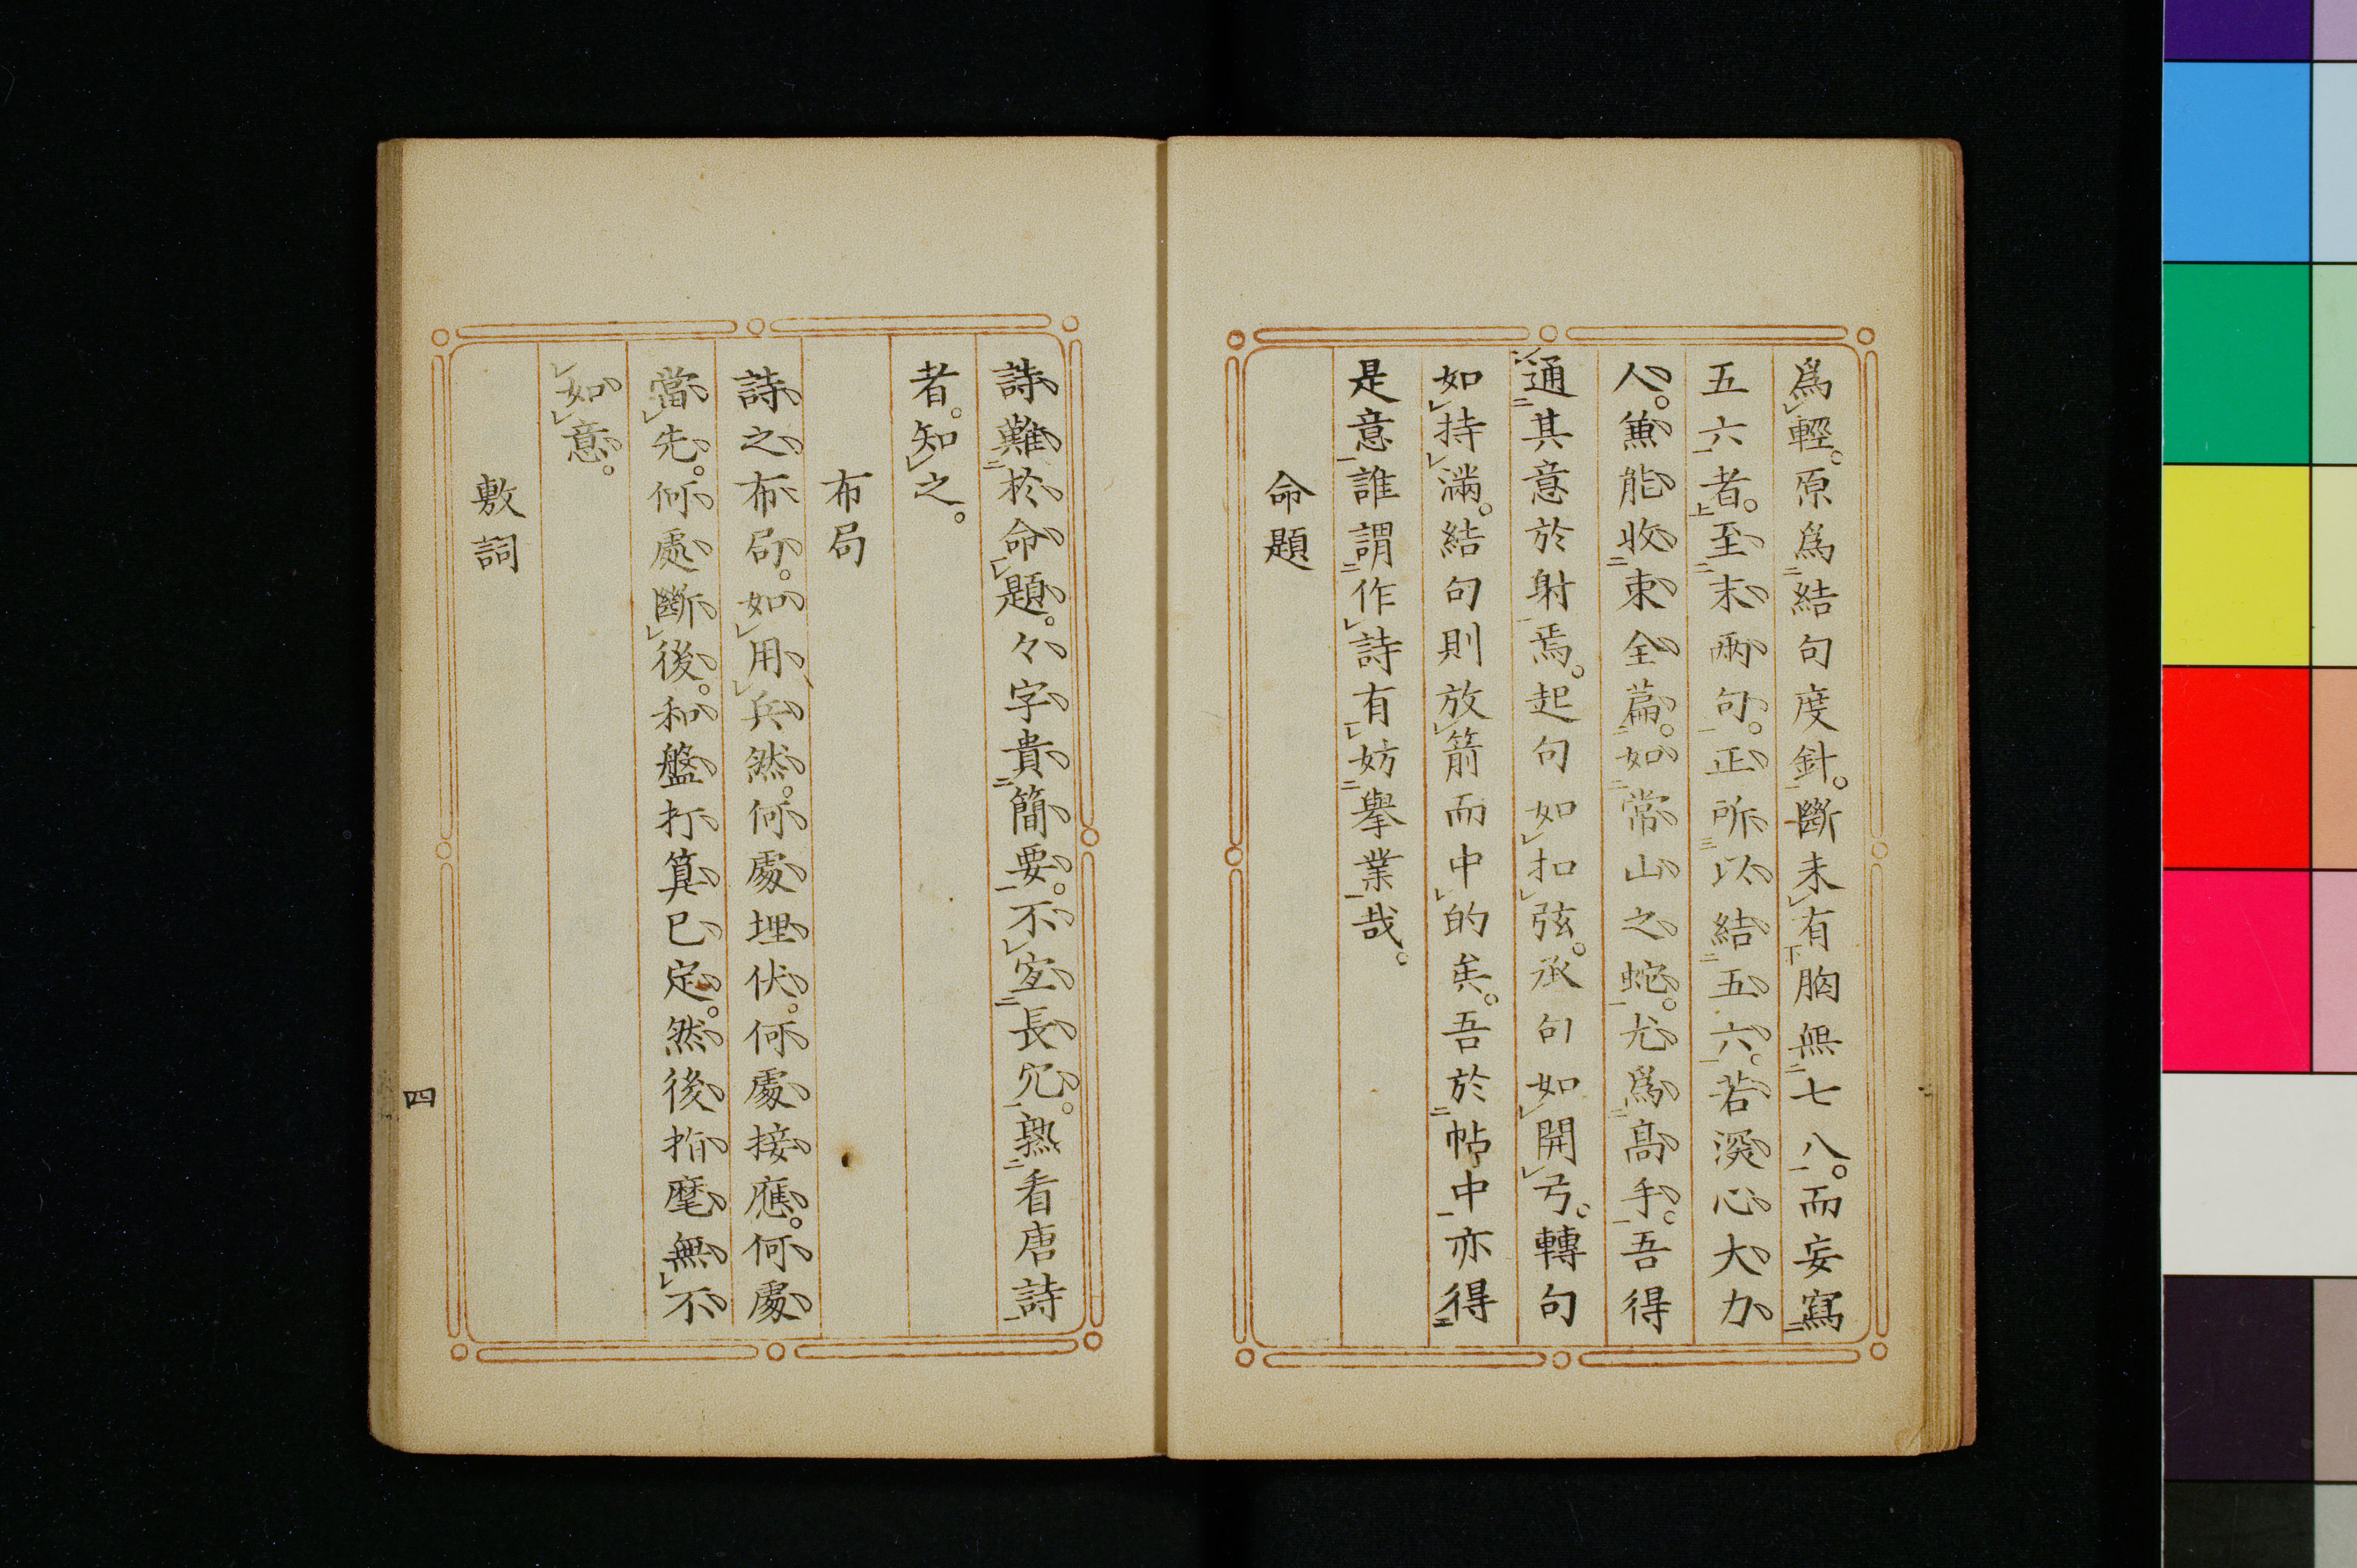 爲輕。原爲結句度針。斷未有胸無七八。而妄寫
五六者。至末兩句。正所以結五六。若深心大力
人。兼能收束全篇。如常山之蛇。尤爲高手。吾得
通其意於射焉。起句如扣弦。承句如開弓。轉句
如持滿。結句則放箭而中的矣。吾於帖中亦得
是意誰謂作詩有妨擧業哉。
命題
詩難於命題。々字貴簡要。不宜長冗。熟看唐詩
者。知之。
布局
詩之布局。如用兵然。何處埋伏。何處接應。何處
當先。何處斷後。和盤打算已定。然後指麾無不
如意。
敷詞
四